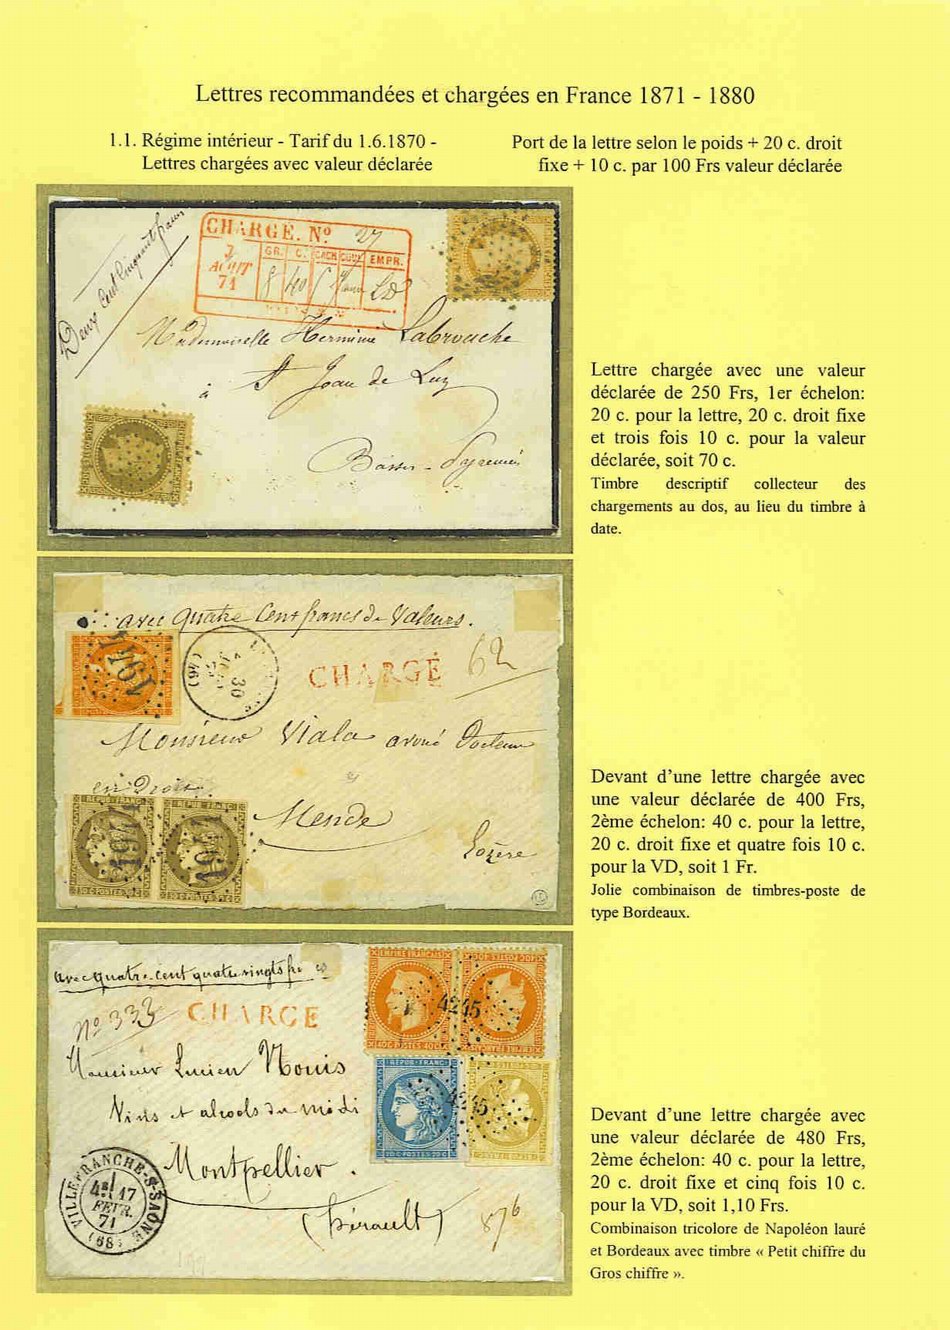 Lettres recommandées et chargées en France 1871 - 1880
1.1. Régime intérieur - Tarif du 1.6.1870 -
Lettres chargées avec valeur déclarée
Port de la lettre selon le poids + 20 c. droit
fixe + 10 c. par 100 Frs valeur déclarée
Deux Cent Cinquante francs
CHARGE. No 27
GR. C. CACH COUL EMPR.
7
AOUT
71
8 40
Mademoiselle Hermine Labrouche
à St Jean de Luz
Basses-Pyrenées
Lettre chargée avec une valeur
déclarée de 250 Frs, 1er échelon:
20 c. pour la lettre, 20 c. droit fixe
et trois fois 10 c. pour la valeur
déclarée, soit 70 c.
Timbre descriptif collecteur des
chargements au dos, au lieu du timbre à
date.
avec Quatre Cent francs de Valeurs.
1974
30
CHARGÉ
62
Monsieur Viala avoué Docteur
en Droit.
à
Mende
Lozère
REPUB FRANC
REPUB FRANC
1974
1974
30 C POSTES 30 C
Devant d'une lettre chargée avec
une valeur déclarée de 400 Frs,
2ème échelon: 40 c. pour la lettre,
20 c. droit fixe et quatre fois 10 c.
pour la VD, soit 1 Fr.
Jolie combinaison de timbres-poste de
type Bordeaux.
avec quatre-cent quatre vingts fr
No 333
CHARGE
EMPIRE FRANÇAIS
40C POSTES 40C
4215
REPUB FRANC
4215
20C POSTES 20C
Monsieur Lucien Nouis
Vins et alcools du midi
Montpellier.
(hérault)
876
VILLEFRANCHE-S-SAÔNE
17
FEVR.
71
(68)
Devant d'une lettre chargée avec
une valeur déclarée de 480 Frs,
2ème échelon: 40 c. pour la lettre,
20 c. droit fixe et cinq fois 10 c.
pour la VD, soit 1,10 Frs.
Combinaison tricolore de Napoléon lauré
et Bordeaux avec timbre « Petit chiffre du
Gros chiffre ».